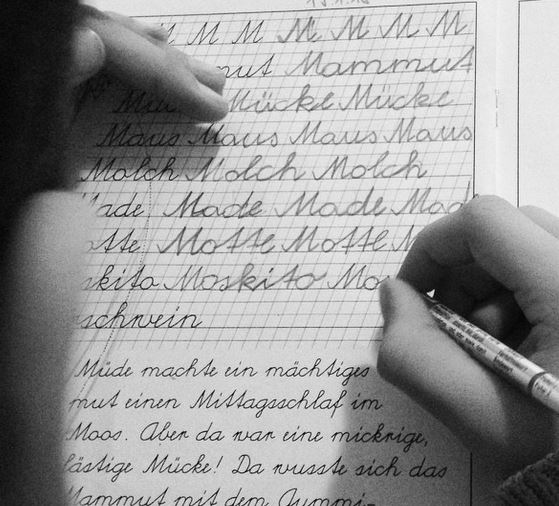 M M M M M M M
Mammut
Mücke Mücke
Maus Maus Maus Maus
Molch Molch Molch
Made Made
Motte Motte
Moskito
Müde machte ein mächtiges
einen Mittagsschlaf im
Moos. Aber da war eine mickrige,
lästige Mücke! Da wusste sich das
Mammut mit dem Gummi-